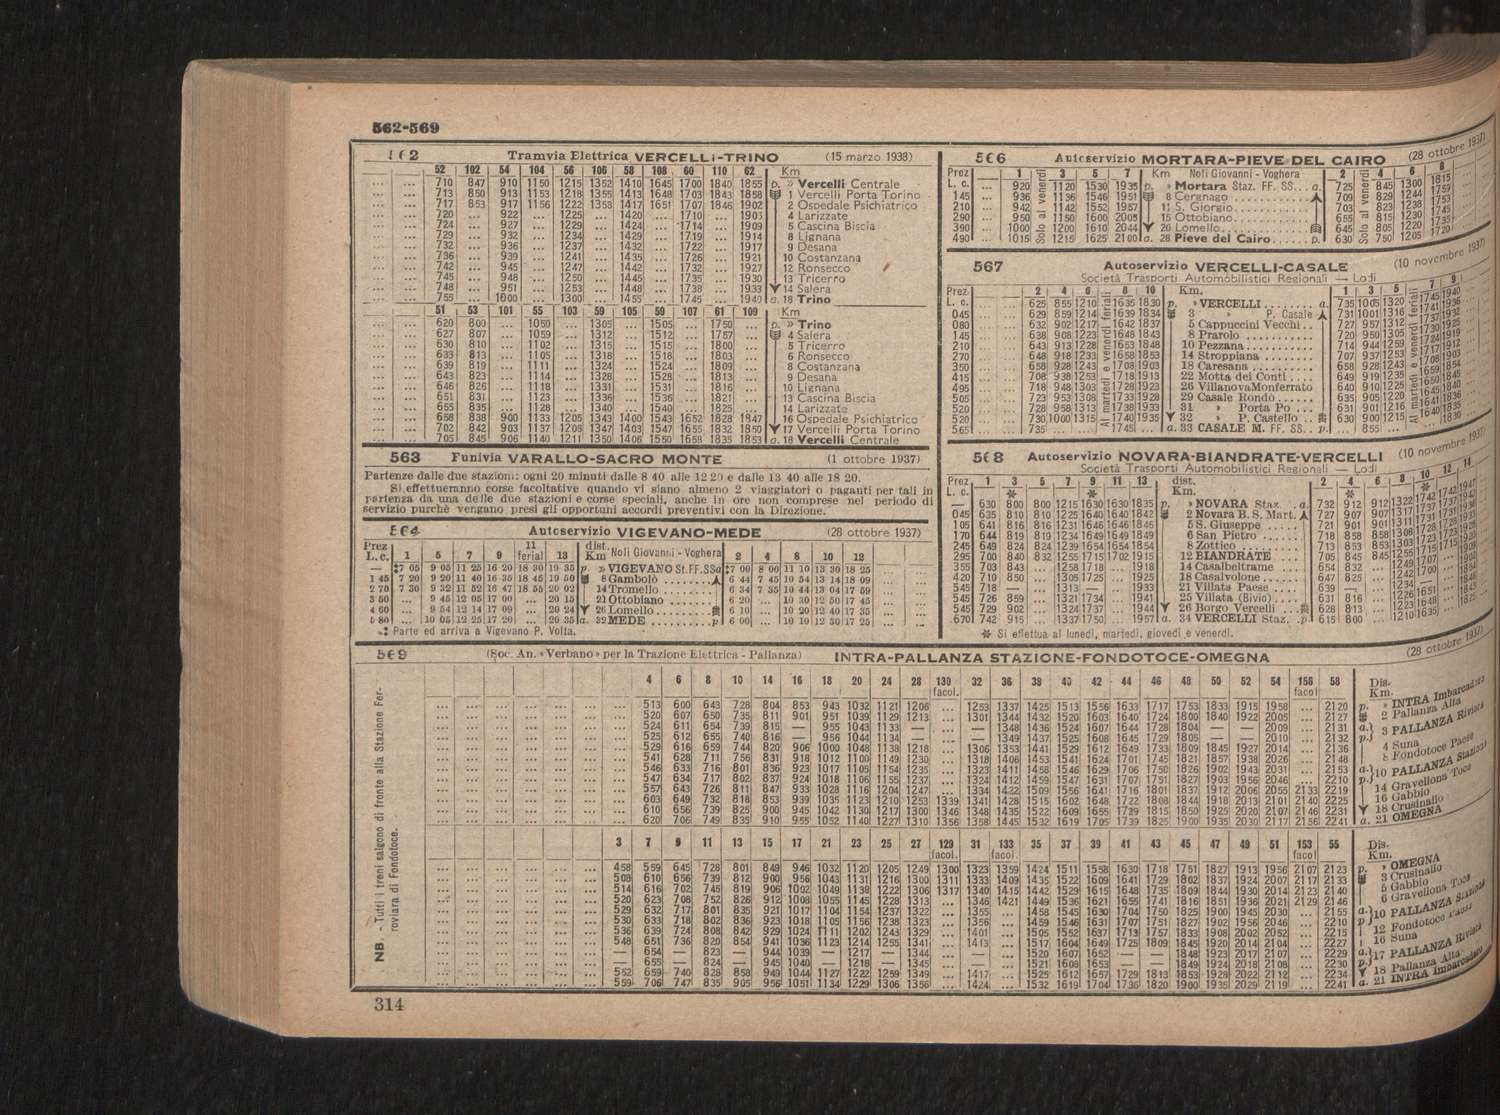 562-569
562 Tramvia Elettrica VERCELLI-TRINO (15 marzo 1938)
52 102 54 104 56 106 58 108 60 110 62 Km
710 847 910 1150 1215 1352 1410 1645 1700 1840 1855 p. » Vercelli Centrale
713 850 913 1153 1218 1355 1413 1648 1703 1843 1858 1 Vercelli Porta Torino
717 853 917 1156 1222 1358 1417 1651 1707 1846 1902 2 Ospedale Psichiatrico
720 ... 922 ... 1225 ... 1420 ... 1710 ... 1905 4 Larizzate
724 ... 927 ... 1229 ... 1424 ... 1714 ... 1909 5 Cascina Biscia
729 ... 932 ... 1234 ... 1429 ... 1719 ... 1914 8 Lignana
732 ... 936 ... 1237 ... 1432 ... 1722 ... 1917 9 Desana
736 ... 939 ... 1241 ... 1435 ... 1726 ... 1921 10 Costanzana
742 ... 945 ... 1247 ... 1442 ... 1732 ... 1927 12 Ronsecco
745 ... 948 ... 1250 ... 1445 ... 1735 ... 1930 13 Tricerro
748 ... 951 ... 1253 ... 1448 ... 1738 ... 1933 14 Salera
755 ... 1000 ... 1300 ... 1455 ... 1745 ... 1940 a. 18 Trino
51 53 101 55 103 59 105 59 107 61 109 Km
620 800 ... 1050 ... 1305 ... 1505 ... 1750 ... p. » Trino
627 807 ... 1059 ... 1312 ... 1512 ... 1757 ... 4 Salera
630 810 ... 1102 ... 1315 ... 1515 ... 1800 ... 5 Tricerro
633 813 ... 1105 ... 1318 ... 1518 ... 1803 ... 6 Ronsecco
639 819 ... 1111 ... 1324 ... 1524 ... 1809 ... 8 Costanzana
643 823 ... 1114 ... 1328 ... 1528 ... 1813 ... 9 Desana
646 826 ... 1118 ... 1331 ... 1531 ... 1816 ... 10 Lignana
651 831 ... 1123 ... 1336 ... 1536 ... 1821 ... 13 Cascina Biscia
655 835 ... 1128 ... 1340 ... 1540 ... 1825 ... 14 Larizzate
658 838 900 1133 1205 1343 1400 1543 1652 1828 1847 16 Ospedale Psichiatrico
702 842 903 1137 1208 1347 1403 1547 1655 1832 1850 17 Vercelli Porta Torino
705 845 906 1140 1211 1350 1406 1550 1658 1835 1853 a. 18 Vercelli Centrale
563 Funivia VARALLO-SACRO MONTE (1 ottobre 1937)
Partenze dalle due stazioni: ogni 20 minuti dalle 8 40 alle 12 20 e dalle 13 40 alle 18 20.
Si effettueranno corse facoltative quando vi siano almeno 2 viaggiatori o paganti per tali in
partenza da una delle due stazioni e corse speciali, anche in ore non comprese nel periodo di
servizio purchè vengano presi gli opportuni accordi preventivi con la Direzione.
564 Autoservizio VIGEVANO-MEDE (28 ottobre 1937)
Prez. L. c. 1 5 7 9 11 ferial 13 dist. Km Noli Giovanni - Voghera 2 4 8 10 12
— ‡7 05 9 05 11 25 16 20 18 30 19 35 p. » VIGEVANO St. FF. SS a ‡7 00 8 00 11 10 13 30 18 25
1 45 7 20 9 20 11 40 16 35 18 45 19 50 8 Gambolò 6 44 7 45 10 54 13 14 18 09
2 70 7 30 9 32 11 52 16 47 18 55 20 02 14 Tromello 6 34 7 35 10 44 13 04 17 59
3 50 ... 9 45 12 05 17 00 ... 20 15 21 Ottobiano 6 20 ... 10 30 12 50 17 45
4 60 ... 9 54 12 14 17 09 ... 20 24 26 Lomello 6 10 ... 10 20 12 40 17 35
5 80 ... 10 05 12 25 17 20 ... 20 35 a. 32 MEDE p 6 00 ... 10 10 12 30 17 25
‡ Parte ed arriva a Vigevano P. Volta.
566 Autoservizio MORTARA-PIEVE DEL CAIRO (28 ottobre 1937)
Prez. L. c. 1 3 5 7 Km Noli Giovanni - Voghera 2 4 6 8
... 920 Solo al venerdì 1120 1530 1935 p. » Mortara Staz. FF. SS. a. 725 Solo al venerdì 845 1300 1815
145 936 1136 1546 1951 8 Cergnago 709 829 1244 1759
210 942 1142 1552 1957 11 S. Giorgio 703 823 1238 1753
290 950 1150 1600 2005 15 Ottobiano 655 815 1230 1745
390 1000 1200 1610 2044 20 Lomello 645 805 1220 1735
490 1015 1215 1625 2100 a. 28 Pieve del Cairo p. 630 750 1205 1720
567 Autoservizio VERCELLI-CASALE (10 novembre 1937)
Società Trasporti Automobilistici Regionali — Lodi
Prez. L. c. 2 4 6 8 10 Km. 1 3 5 7 9
... 625 855 1210 Martedì e venerdì 1635 1830 p. » VERCELLI a. 735 1005 1320 Martedì e venerdì 1745 1940
045 629 859 1214 1639 1834 3 » P. Casale 731 1001 1316 1741 1936
080 632 902 1217 1642 1837 5 Cappuccini Vecchi 727 957 1312 1737 1932
145 638 908 1223 1648 1843 8 Prarolo 720 950 1305 1730 1925
210 643 913 1228 1653 1848 10 Pezzana 714 944 1259 1724 1919
270 648 918 1233 1658 1853 14 Stroppiana 707 937 1253 1717 1912
350 658 928 1243 1708 1903 18 Caresana 658 928 1243 1708 1903
415 708 938 1253 1718 1913 22 Motta dei Conti 649 919 1235 1659 1854
495 718 948 1303 1728 1923 26 Villanova Monferrato 640 910 1225 1650 1845
505 723 953 1308 1733 1928 29 Casale Rondò 635 905 1220 1645 1840
520 728 958 1313 1738 1933 31 » Porta Po 631 901 1216 1640 1835
520 730 1000 1315 1740 1935 32 » P. Castello 630 900 1215 ... 1830
565 735 ... 1745 ... a. 33 CASALE M. FF. SS. p. ... 855 ...
568 Autoservizio NOVARA-BIANDRATE-VERCELLI (10 novembre 1937)
Società Trasporti Automobilistici Regionali — Lodi
Prez. L. c. 1 3 5 7 9 11 13 dist. Km. 2 4 6 8 10 12 14
— 630 800 800 1215 1630 1630 1835 p. » NOVARA Staz. a. 732 912 912 1322 1742 1742 1947
045 635 810 810 1225 1640 1640 1842 2 Novara B. S. Mart. 727 907 907 1317 1737 1737
105 641 816 816 1231 1646 1646 1846 5 S. Giuseppe 721 901 901 1311 1731 1731 1936
170 644 819 819 1234 1649 1649 1849 6 San Pietro 718 858 858 1308 1728 1728
245 649 824 824 1239 1654 1654 1854 8 Zottico 713 853 853 1303 1723
295 700 840 832 1255 1715 1702 1915 12 BIANDRATE 705 845 845 1255 1715 1715 1920
355 703 843 ... 1258 1718 ... 1918 14 Casalbeltrame 654 832 ... 1249 1707
420 710 850 ... 1305 1725 ... 1925 18 Casalvolone 647 825 ... 1242 1700
545 718 — ... 1313 — ... 1933 21 Villata Paese 639 — ... 1234 —
545 726 859 ... 1321 1734 ... 1941 25 Villata (Bivio) 631 816 ... 1226 1651
545 729 902 ... 1324 1737 ... 1944 26 Borgo Vercelli 628 813 ... 1223 1648
670 742 915 ... 1337 1750 ... 1957 a. 34 VERCELLI Staz. p 615 800 ... 1210 1635 ... 1825
✻ Si effettua al lunedì, martedì, giovedì e venerdì.
569 (Soc. An. «Verbano» per la Trazione Elettrica - Pallanza) INTRA-PALLANZA STAZIONE-FONDOTOCE-OMEGNA (28 ottobre 1937)
NB. - Tutti i treni salgono di fronte alla Stazione Ferroviara di Fondotoce.
4 6 8 10 14 16 18 20 24 28 130 facol. 32 36 38 40 42 44 46 48 50 52 54 156 facol 58 Dis. Km.
513 600 643 728 804 853 943 1032 1121 1206 ... 1253 1337 1425 1513 1556 1633 1717 1753 1833 1915 1958 ... 2120 p. » INTRA Imbarcadero
520 607 650 735 811 901 951 1039 1129 1213 ... 1301 1344 1432 1520 1603 1640 1724 1800 1840 1922 2005 ... 2127 2 Pallanza Alta
524 611 654 739 815 — 955 1043 1133 — ... — 1348 1436 1524 1607 1644 1728 1804 — — 2009 ... 2131 a. 3 PALLANZA Riviera
525 612 655 740 816 — 956 1044 1134 — ... — 1349 1437 1525 1608 1645 1729 1805 — — 2010 ... 2132 p.
529 616 659 744 820 906 1000 1048 1138 1218 ... 1306 1353 1441 1529 1612 1649 1733 1809 1845 1927 2014 ... 2136 4 Suna
541 628 711 756 831 918 1012 1100 1149 1230 ... 1318 1406 1453 1541 1624 1701 1745 1821 1857 1938 2026 ... 2148 8 Fondotoce Paese
546 633 716 801 836 923 1017 1105 1154 1235 ... 1323 1411 1458 1546 1629 1706 1750 1826 1902 1943 2031 ... 2153 a. 10 PALLANZA Stazione
547 634 717 802 837 924 1018 1106 1155 1237 ... 1324 1412 1459 1547 1631 1707 1751 1827 1903 1956 2046 ... 2210 p.
557 643 726 811 847 933 1028 1116 1204 1247 ... 1334 1422 1509 1556 1641 1716 1801 1837 1912 2006 2055 2133 2219 14 Gravellona Toce
603 649 732 818 853 939 1035 1123 1210 1253 1339 1341 1428 1515 1602 1648 1722 1808 1844 1918 2013 2101 2140 2225 16 Gabbio
610 656 739 825 900 945 1042 1130 1217 1300 1346 1348 1435 1522 1609 1655 1729 1815 1850 1925 2020 2107 2146 2231 18 Crusinallo
620 706 749 835 910 955 1052 1140 1227 1310 1356 1358 1445 1532 1619 1705 1739 1825 1900 1935 2030 2117 2156 2241 a. 21 OMEGNA
3 7 9 11 13 15 17 21 23 25 27 129 facol. 31 133 facol. 35 37 39 41 43 45 47 49 51 153 facol 55 Dis. Km.
458 559 645 728 801 849 946 1032 1120 1205 1249 1300 1323 1359 1424 1511 1558 1630 1718 1751 1827 1913 1956 2107 2123 p. » OMEGNA
508 610 656 739 812 900 956 1043 1131 1216 1300 1311 1333 1409 1435 1522 1609 1641 1729 1802 1837 1924 2007 2117 2133 3 Crusinallo
514 616 702 745 819 906 1002 1049 1138 1222 1306 1317 1340 1415 1442 1529 1615 1648 1735 1809 1844 1930 2014 2123 2140 5 Gabbio
520 623 708 752 826 912 1008 1055 1145 1228 1313 ... 1346 1421 1449 1536 1621 1655 1741 1816 1851 1936 2021 2129 2146 6 Gravellona Toce
529 632 717 801 835 921 1017 1104 1154 1237 1322 ... 1355 ... 1458 1545 1630 1704 1750 1825 1900 1945 2030 ... 2155 a. 10 PALLANZA Stazione
530 633 718 802 836 923 1018 1105 1156 1238 1323 ... 1356 ... 1459 1546 1631 1707 1751 1827 1902 1956 2046 ... 2210 p.
536 639 724 808 842 929 1024 1111 1202 1243 1329 ... 1401 ... 1505 1552 1637 1713 1757 1833 1908 2002 2052 ... 2215 12 Fondotoce Paese
548 651 736 820 854 941 1036 1123 1214 1255 1341 ... 1413 ... 1517 1604 1649 1725 1809 1845 1920 2014 2104 ... 2227 16 Suna
— 654 — 823 — 944 1039 — 1217 — 1344 ... — ... 1520 1607 1652 — — 1848 1923 2017 2107 ... 2229 a. 17 PALLANZA Riviera
— 655 — 824 — 945 1040 — 1218 — 1345 ... — ... 1521 1608 1653 — — 1849 1924 2018 2108 ... 2230 p.
552 659 740 828 858 949 1044 1127 1222 1259 1349 ... 1417 ... 1525 1612 1657 1729 1813 1853 1928 2022 2112 ... 2234 18 Pallanza Alta
559 706 747 835 905 956 1051 1134 1229 1306 1356 ... 1424 ... 1532 1619 1704 1736 1820 1900 1935 2029 2119 ... 2241 a. 21 INTRA Imbarcadero
314